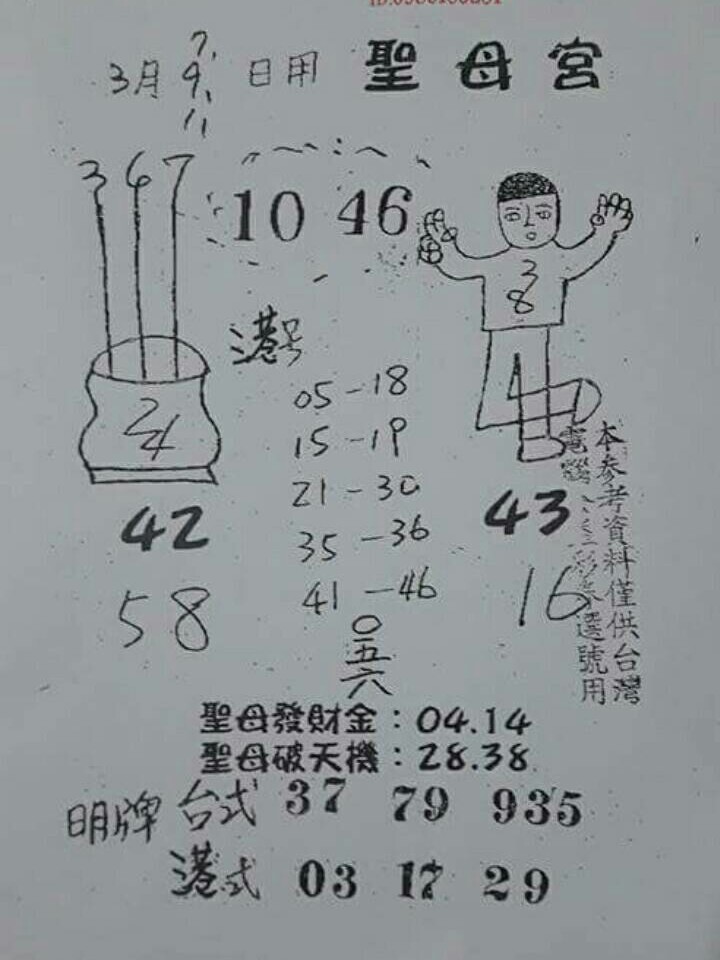 3月 7, 9, 11 日用 聖母宮
3 6 7
10 46
3
8
港号
05-18
15-19
21-30
35-36
41-46
24
42
43
58
16
〇五六
本参考資料僅供台灣
電腦
彩券選號用
聖母發財金：04.14
聖母破天機：28.38
明牌 台式 37 79 935
港式 03 17 29